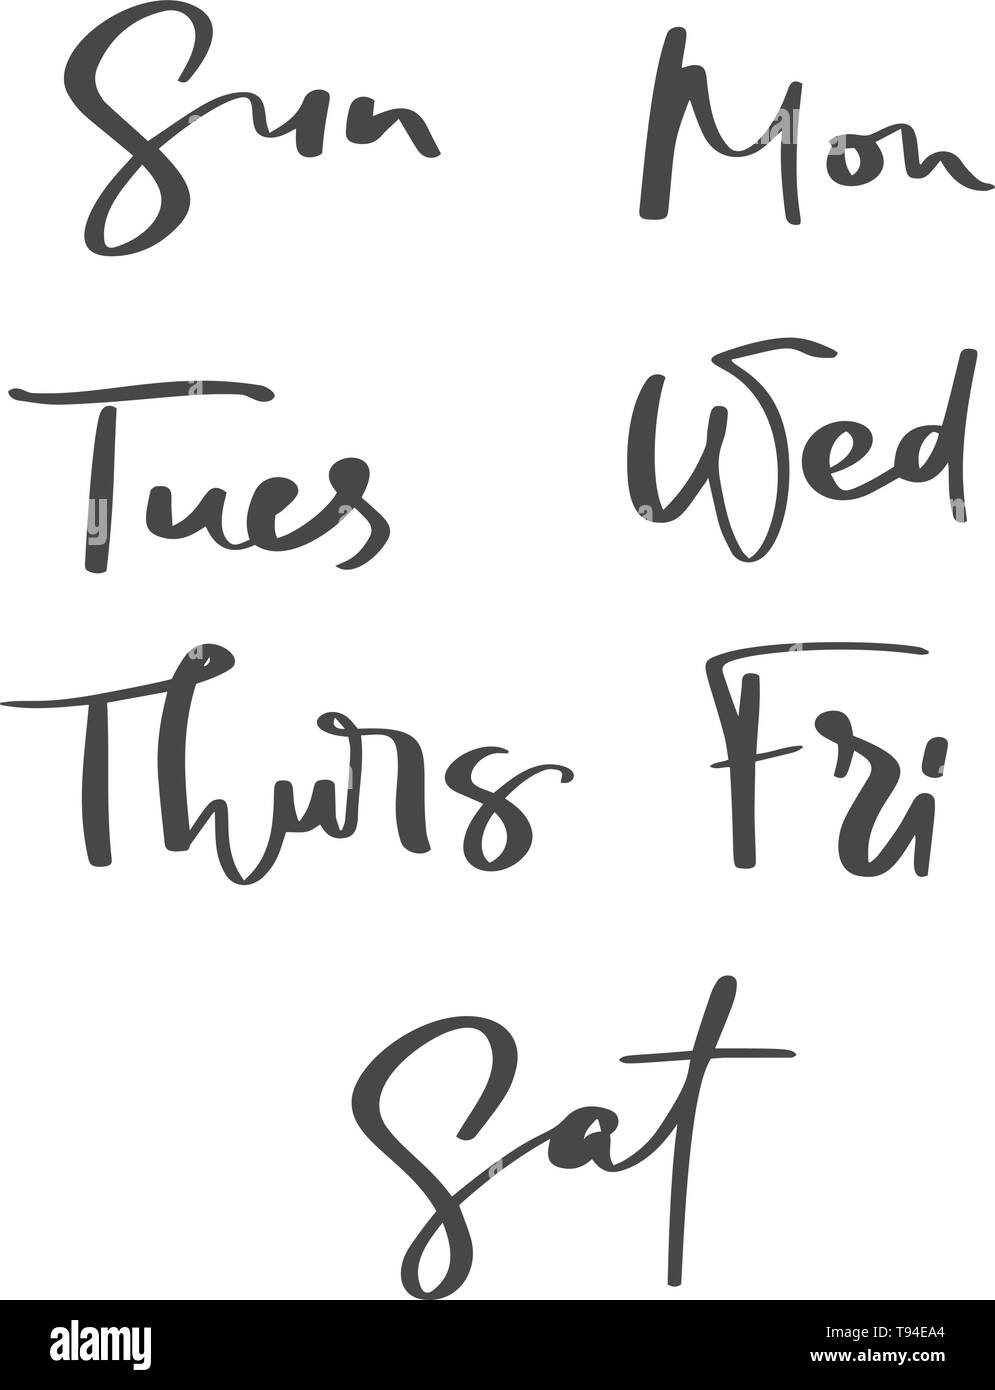 Sun Mon
Tues Wed
Thurs Fri
Sat
alamy
Image ID: T94EA4
www.alamy.com